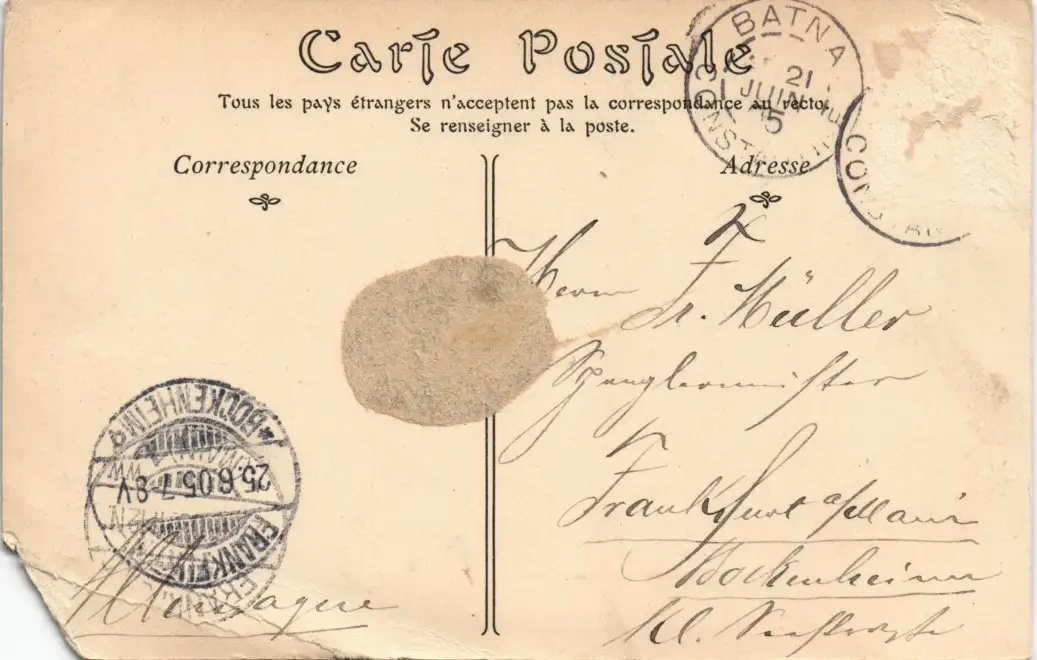 Carte Postale
Tous les pays étrangers n'acceptent pas la correspondance au recto.
Se renseigner à la poste.
Correspondance
Adresse
BATNA
21
JUIN
05
CONSTANTINE
CONSTAN
Herrn Fr. Müller
Spenglermeister
Frankfurt a/Main
Bockenheim
Kl.
Allemagne
BOCKENHEIM
25.6.05 7-8V
FRANKFURT